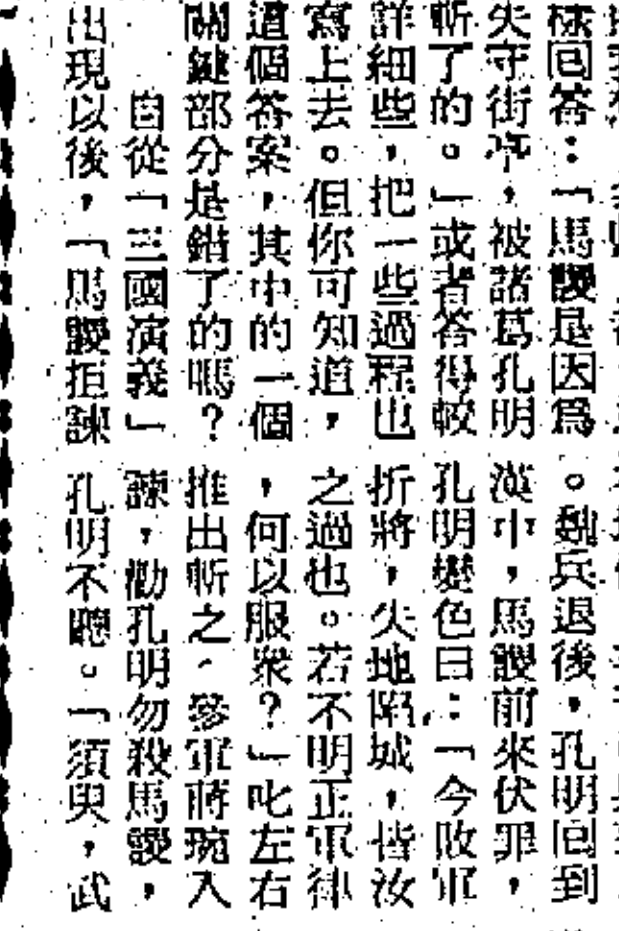 樣回答：「馬謖是因爲
失守街亭，被諸葛孔明
斬了的。」或者答得較
詳細些，把一些過程也
寫上去。但你可知道，
這個答案，其中的一個
關鍵部分是錯了的嗎？
自從「三國演義」
出現以後，「馬謖拒諫
。魏兵退後，孔明回到
漢中，馬謖前來伏罪，
孔明變色曰：「今敗軍
折將，失地陷城，皆汝
之過也。若不明正軍律
，何以服衆？」叱左右
推出斬之，參軍蔣琬入
諫，勸孔明勿殺馬謖，
孔明不聽。「須臾，武